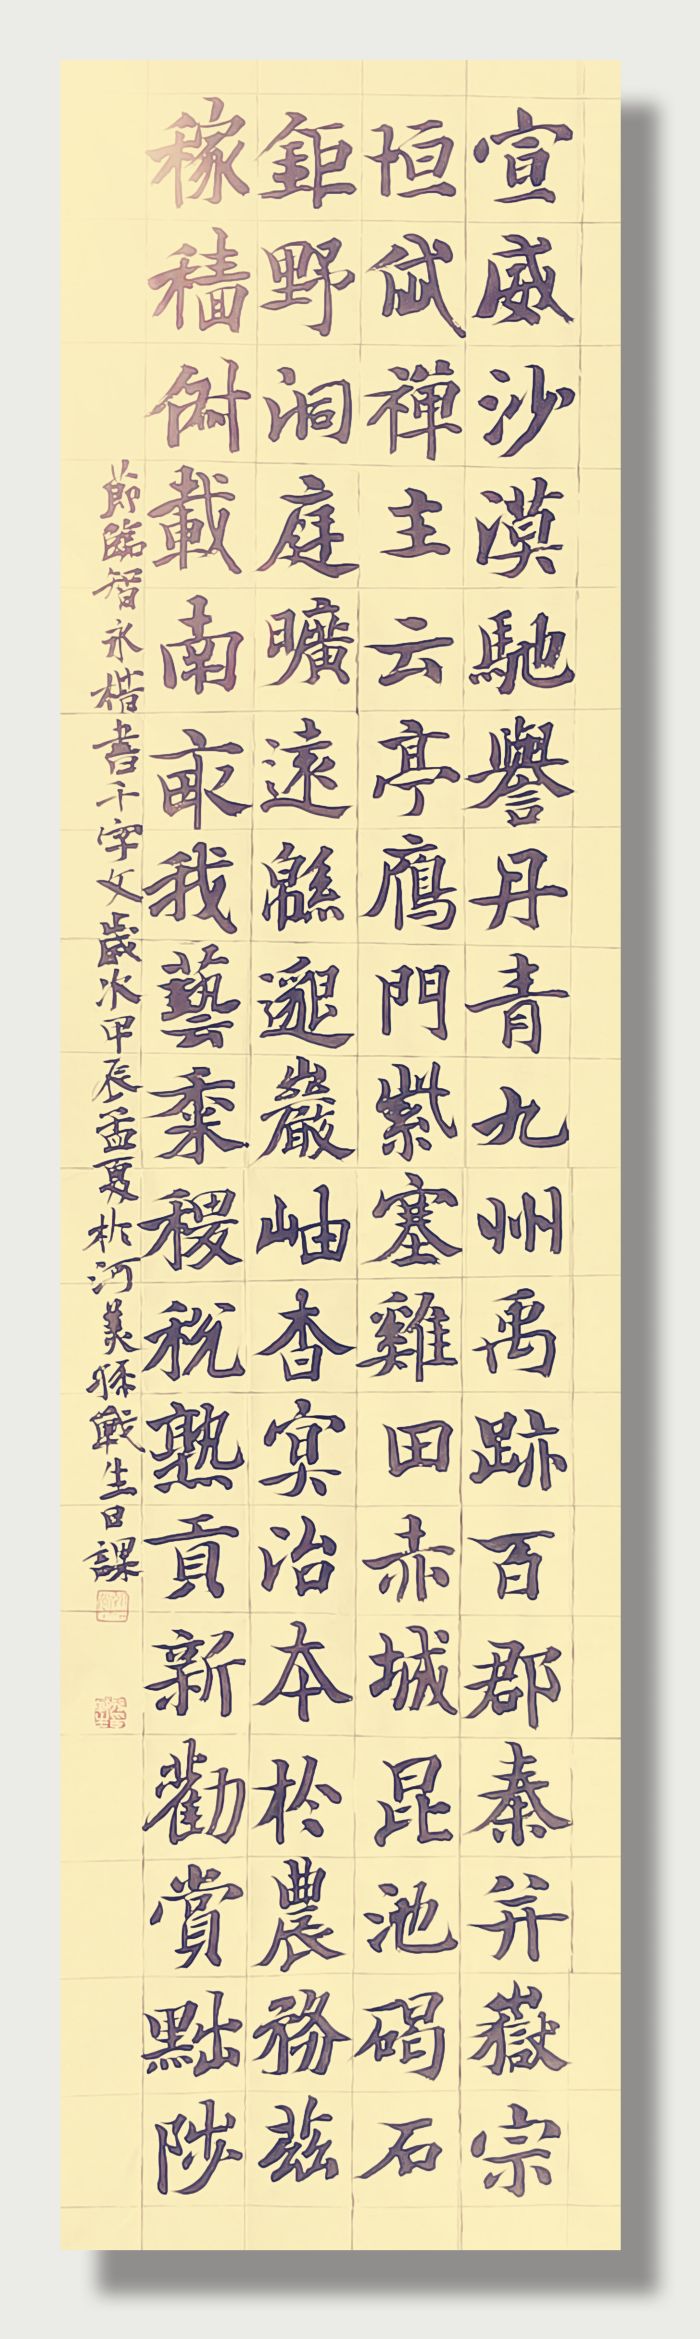 宣威沙漠馳譽丹青九州禹跡百郡秦并嶽宗
恒岱禪主云亭鴈門紫塞雞田赤城昆池碣石
鉅野洞庭曠遠緜邈巖岫杳冥治本於農務茲
稼穡俶載南畝我藝黍稷稅熟貢新勸賞黜陟
節臨智永楷書千字文歲次甲辰孟夏於河美孫戰生日課